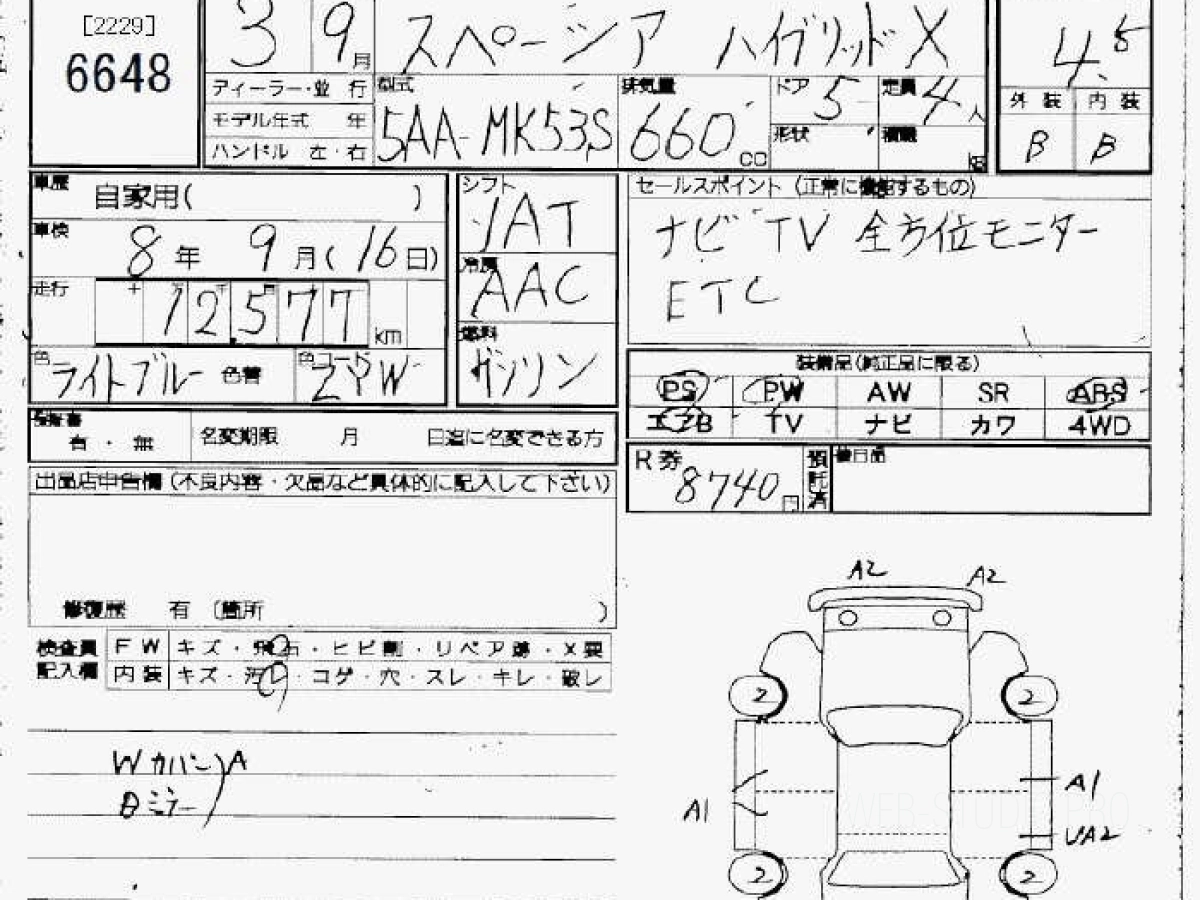 [2229]
6648
3 9月 スペーシア ハイブリッドX
4.5
ディーラー・並 行
型式
排気量
ドア 5
定員 4人
外 装 内 装
モデル年式 年
5AA-MK53S
660 cc
形状
積載 kg
B B
ハンドル 左・右
車歴 自家用( )
シフト
セールスポイント (正常に機能するもの)
IAT
ナビ TV 全方位モニター
車検 8年 9月(16日)
冷房
AAC
ETC
走行 十 万 千 百
12,577 km
燃料
ガソリン
色 ライトブルー 色替
色コード
ZYW
装備品(純正品に限る)
PS PW AW SR ABS
エアB TV ナビ カワ 4WD
保証書
有・無
名変期限 月 日迄に名変できる方
R券
8740円
預託済
後日品
出品店申告欄(不良内容・欠品など具体的に記入して下さい)
修復歴 有 [箇所 )
検査員記入欄
FW キズ・飛石・ヒビ割・リペア跡・X要
内装 キズ・汚レ・コゲ・穴・スレ・キレ・破レ
A2 A2
2 2
Wカバン)A
Bミラー
A1
A1
UA2
2 2